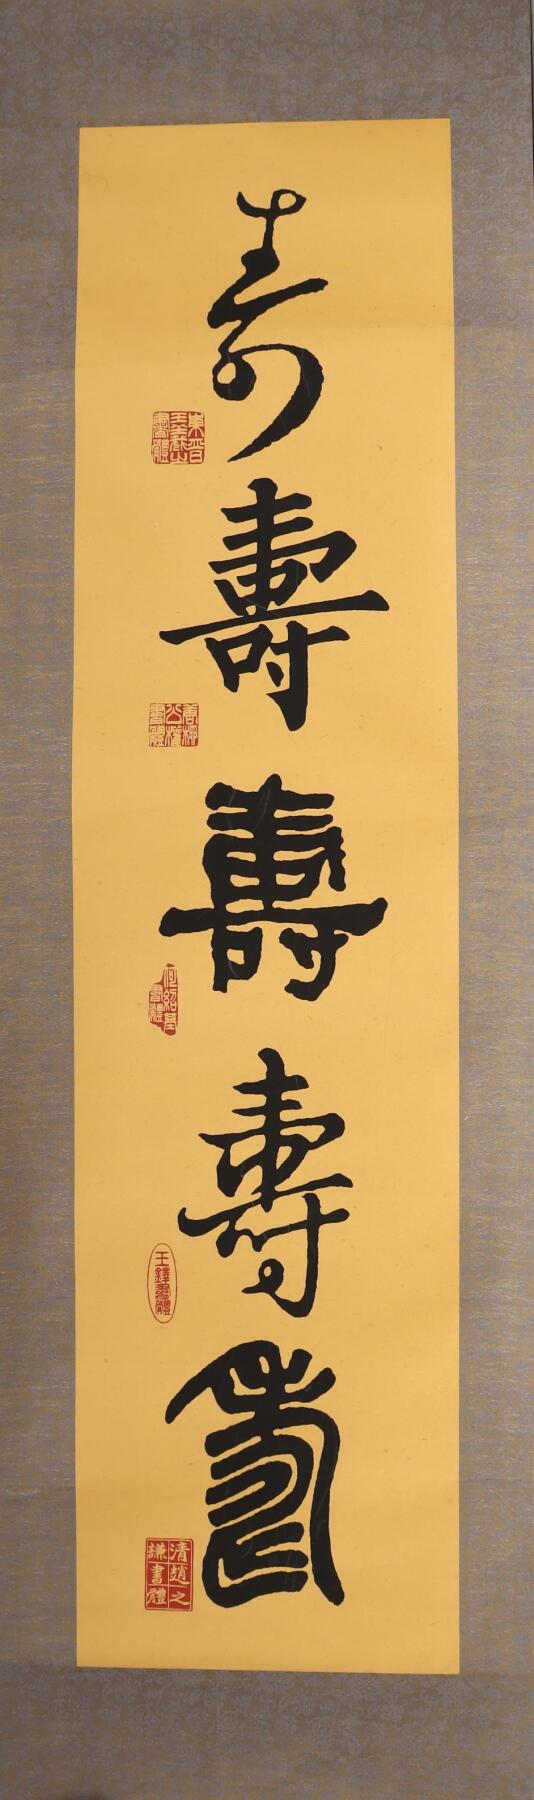 壽
東晉王羲之書體
壽
唐柳公權書體
壽
何紹基書體
壽
王鐸書體
壽
清趙之謙書體